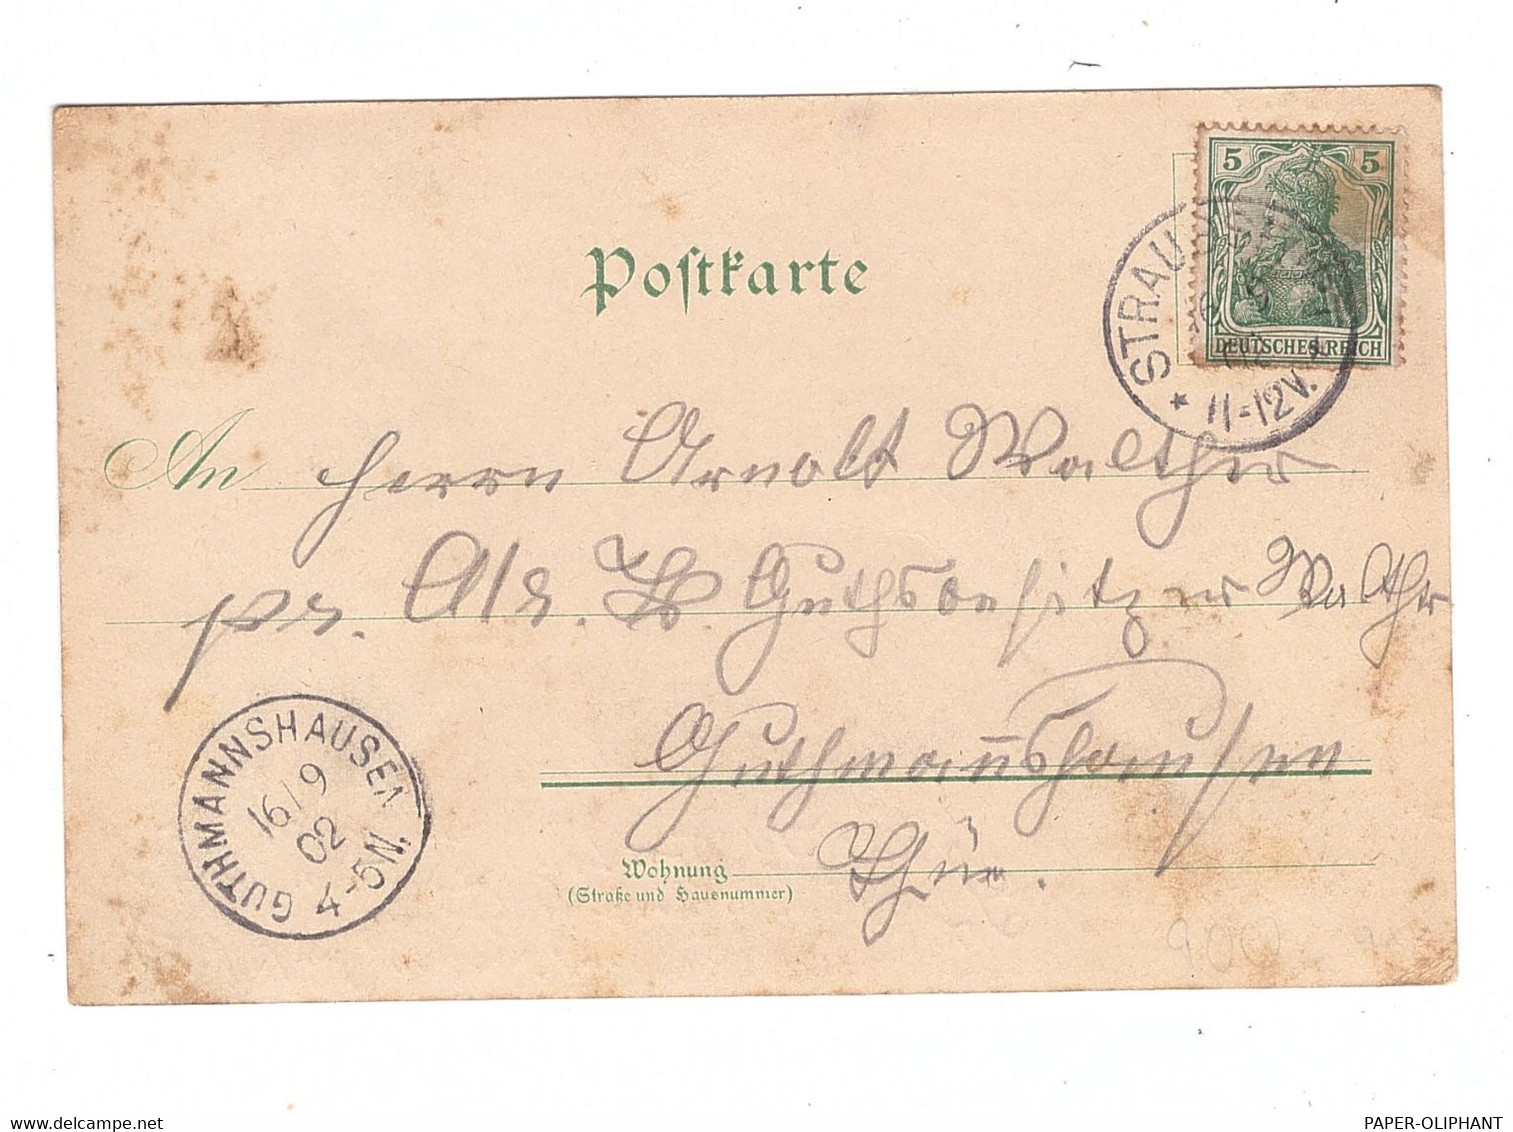 Postkarte
5 5
DEUTSCHES REICH
STRAU
11-12V.
An Herrn Arnolt Walther
pr. Adr. H. Guthsbesitzer Walther
Guthmannshausen
Wohnung Thür.
(Straße und Hausnummer)
GUTHMANNSHAUSEN
16/9
02
4-5N.
900
delcampe.net
PAPER-OLIPHANT